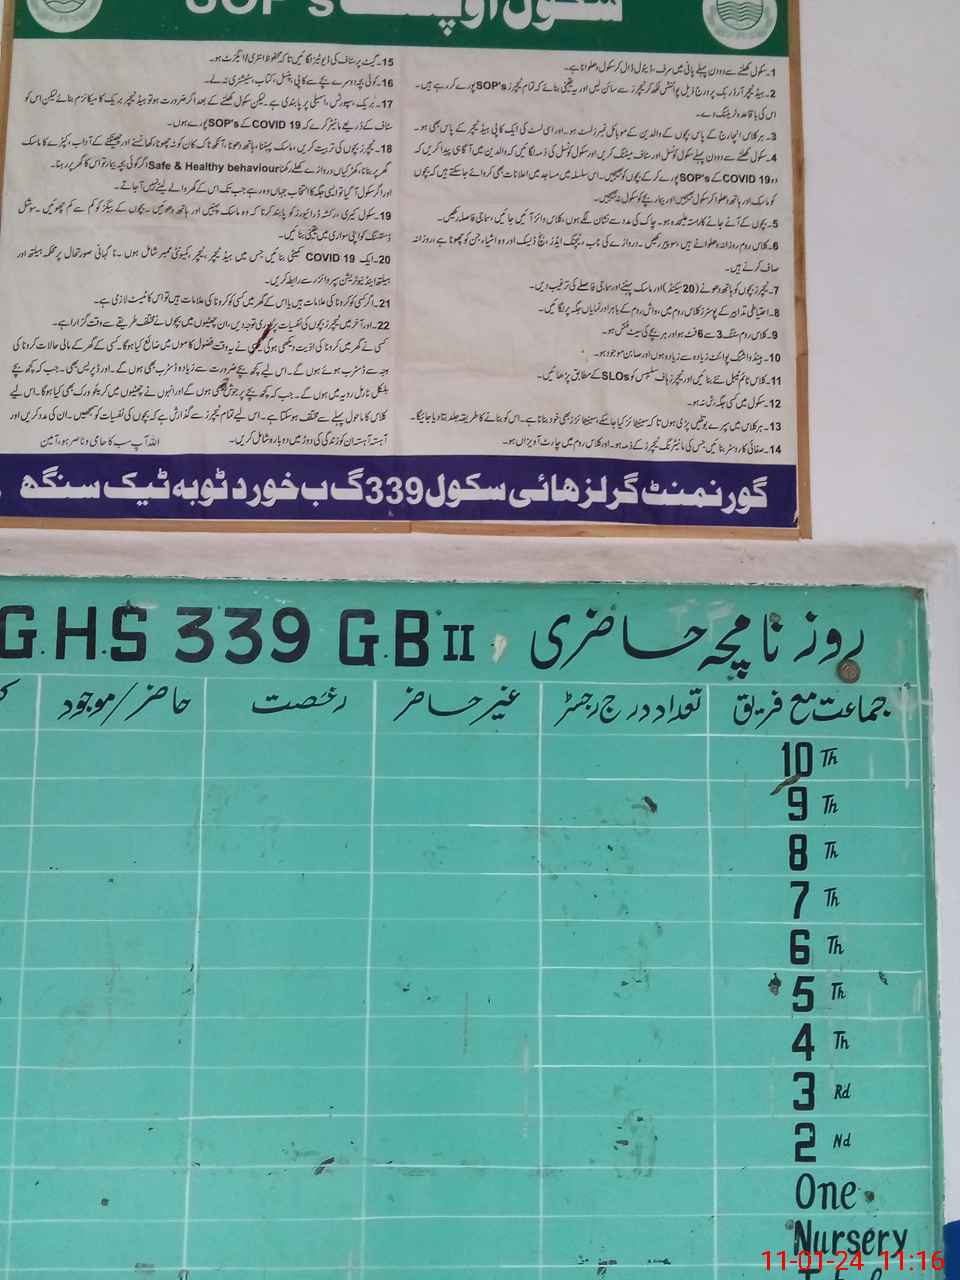 سکول اوپننگ SOP's
1۔ سکول کھلنے سے دو دن پہلے پانی میں سرف، ڈیٹول ڈال کر سکول دھلوانا ہے۔
2۔ ہیڈ ٹیچر آرڈر بک پر درج ذیل پوائنٹس لکھ کر ٹیچرز سے سائن لیں اور یہ یقینی بنائے کہ تمام ٹیچرز SOP's پورے کر رہے ہیں۔
اس کی باقاعدہ ٹریننگ دے۔
3۔ ہر کلاس انچارج کے پاس بچوں کے والدین کے موبائل نمبرز لسٹ ہو۔ اور اسی لسٹ کی ایک کاپی ہیڈ ٹیچر کے پاس بھی ہو۔
4۔ سکول کھلنے سے دو دن پہلے سکول کونسل اور سٹاف میٹنگ کریں اور سکول کونسل کی ذمہ لگائیں کہ والدین میں آگاہی پیدا کریں کہ
وہ COVID 19 کے SOP's پورے کر کے بچوں کو بھیجیں۔ اس سلسلہ میں مساجد میں اعلانات بھی کروائے جا سکتے ہیں کہ بچوں
کو ماسک اور ہاتھ دھلوا کر سکول بھیجیں اور بیمار بچے کو سکول نہ بھیجیں۔
5۔ بچوں کے آنے جانے کا رستہ علیحدہ ہو۔ چاک کی مدد سے نشان لگے ہوں، کلاس وائز آئیں جائیں، سماجی فاصلہ رکھیں۔
6۔ کلاس روم روزانہ دھلوانے ہیں، سوپ پر رکھیں۔ دروازے کی ناب، ٹیچنگ ایڈز، بنچ ڈیسک اور وہ اشیاء جن کو چھونا ہے، روزانہ
صاف کرنے ہیں۔
7۔ ٹیچرز بچوں کو ہاتھ دھونے (20 سیکنڈ) اور ماسک پہننے اور سماجی فاصلے کی ترغیب دیں۔
8۔ احتیاطی تدابیر کے پوسٹرز کلاس روم میں، واش روم کے باہر اور نمایاں جگہ پر لگائیں۔
9۔ کلاس روم سٹنگ 3 سے 6 فٹ ہو اور ہر بچے کی سیٹ فکس ہو۔
10۔ ہینڈ واشنگ پوائنٹ زیادہ سے زیادہ ہوں اور صابن موجود ہو۔
11۔ کلاس ٹائم ٹیبل نئے بنائیں اور ٹیچرز ہاف سلیبس کو SLOs کے مطابق پڑھائیں۔
12۔ سکول میں کسی جگہ رش نہ ہو۔
13۔ ہر کلاس میں سپرے بوتلیں پڑی ہوں تاکہ سینیٹائز کیا جا سکے، سینیٹائزر بھی خود بنانا ہے۔ اس کو بنانے کا طریقہ جلد بتا دیا جائیگا۔
14۔ صفائی کا روسٹر بنائیں جس کی مانیٹرنگ ٹیچرز کے ذمہ ہو۔ اور کلاس روم میں چارٹ آویزاں ہو۔
15۔ گیٹ پر سٹاف کی ڈیوٹیز لگائیں تاکہ محفوظ انٹری / ایگزٹ ہو۔
16۔ کوئی بچہ دوسرے بچے سے کاپی، پنسل، کتاب، سٹیشنری نہ لے۔
17۔ بریک، سپورٹس، اسمبلی پر پابندی ہے۔ لیکن سکول کھلنے کے بعد اگر ضرورت ہو تو ہیڈ ٹیچر بریک کا میکانزم بنائے لیکن اس کو
سٹاف کے ذریعے مانیٹر کرے کہ COVID 19 کے SOP's پورے ہوں۔
18۔ ٹیچرز بچوں کی تربیت کریں، ماسک پہننا، ہاتھ دھونا، آنکھ ناک کان کو نہ چھونا، کھانسنے اور چھینکنے کے آداب، کپڑے کا ماسک
گھر پر بنانا، کھڑکیاں دروازے کھلے رکھنا Safe & Healthy behaviour اگر کوئی بچہ بیمار تو اس کا گھر پر رہنا۔
اور اگر سکول آ گیا تو ایسی جگہ کا انتخاب جہاں وہ رہے جب تک اس کے گھر والے لینے نہیں آ جاتے۔
19۔ سکول کیری، رکشہ ڈرائیورز کو پابند کرنا کہ وہ ماسک پہنیں اور ہاتھ دھوئیں۔ بچوں کے بیگز کو کم سے کم چھوئیں۔ سوشل
ڈسٹنسنگ کو اپنی سواری میں یقینی بنائیں۔
20۔ ایک COVID 19 کمیٹی بنائیں جس میں ہیڈ ٹیچر، ٹیچر، کمیونٹی ممبر شامل ہوں۔ ناگہانی صورتحال پر محکمہ ہیلتھ اور
ہیلتھ اینڈ نیوٹریشن سپروائزر سے رابطہ کریں۔
21۔ اگر کسی کو کرونا کی علامات ہیں یا اس کے گھر میں کسی کو کرونا کی علامات ہیں تو اس کا ٹیسٹ لازمی ہے۔
22۔ اور آخر میں ٹیچرز بچوں کی نفسیات پر پوری توجہ دیں، ان چھٹیوں میں بچوں نے مختلف طریقے سے وقت گزارا ہے۔
کسی نے گھر میں کرونا کی اذیت دیکھی ہو گی کسی نے یہ وقت فضول کاموں میں ضائع کیا ہوگا۔ کسی کے گھر کے مالی حالات کرونا کی
وجہ سے ڈسٹرب ہوئے ہوں گے۔ اس لیے کچھ بچے ضرورت سے زیادہ ڈسٹرب بھی ہوں گے۔ اور ڈپریس بھی۔ جب کہ کچھ بچے
بالکل نارمل رویہ میں ہوں گے۔ جب کہ کچھ بچے پر جوش بھی ہوں گے اور انہوں نے چھٹیوں میں کریٹو ورک بھی کیا ہوگا۔ اس لیے
کلاس کا ماحول پہلے سے مختلف ہو سکتا ہے۔ اس لیے تمام ٹیچرز سے گذارش ہے کہ بچوں کی نفسیات کو سمجھیں۔ ان کی مدد کریں اور
آہستہ آہستہ ان کو زندگی کی دوڑ میں دوبارہ شامل کریں۔ اللہ آپ سب کا حامی و ناصر ہو، آمین
گورنمنٹ گرلز ہائی سکول 339 گ ب خورد ٹوبہ ٹیک سنگھ
روز نامچہ حاضری G.H.S 339 G.B II
جماعت مع فریق تعداد درج رجسٹر غیر حاضر رخصت حاضر/موجود
10 Th
9 Th
8 Th
7 Th
6 Th
5 Th
4 Th
3 Rd
2 Nd
One
Nursery
11-01-24 11:16